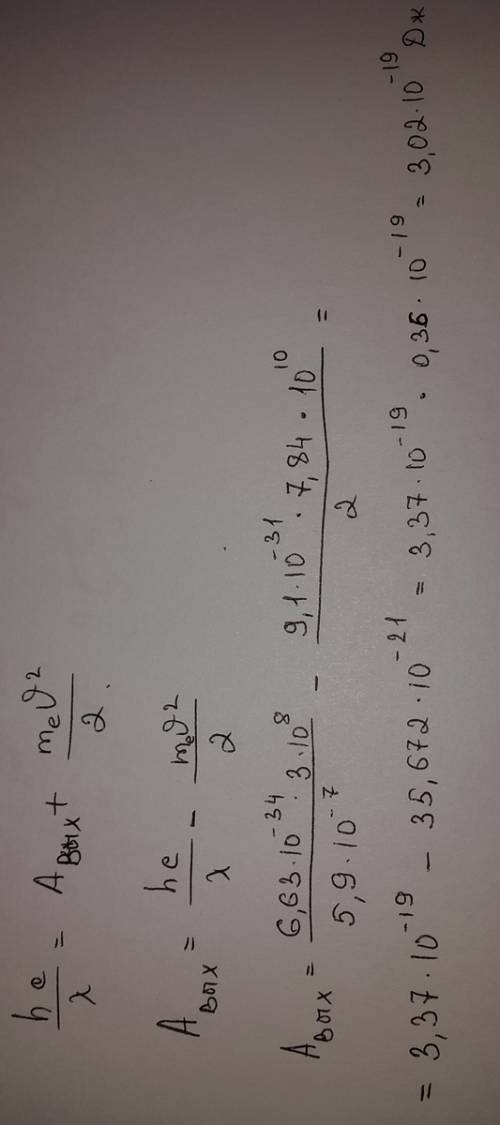 hc/λ = Aвых + mₑϑ²/2.
Aвых = hc/λ − mₑϑ²/2
Aвых = 6,63·10⁻³⁴·3·10⁸/5,9·10⁻⁷ − 9,1·10⁻³¹·7,84·10¹⁰/2 =
= 3,37·10⁻¹⁹ − 35,672·10⁻²¹ = 3,37·10⁻¹⁹ · 0,35·10⁻¹⁹ = 3,02·10⁻¹⁹ Дж